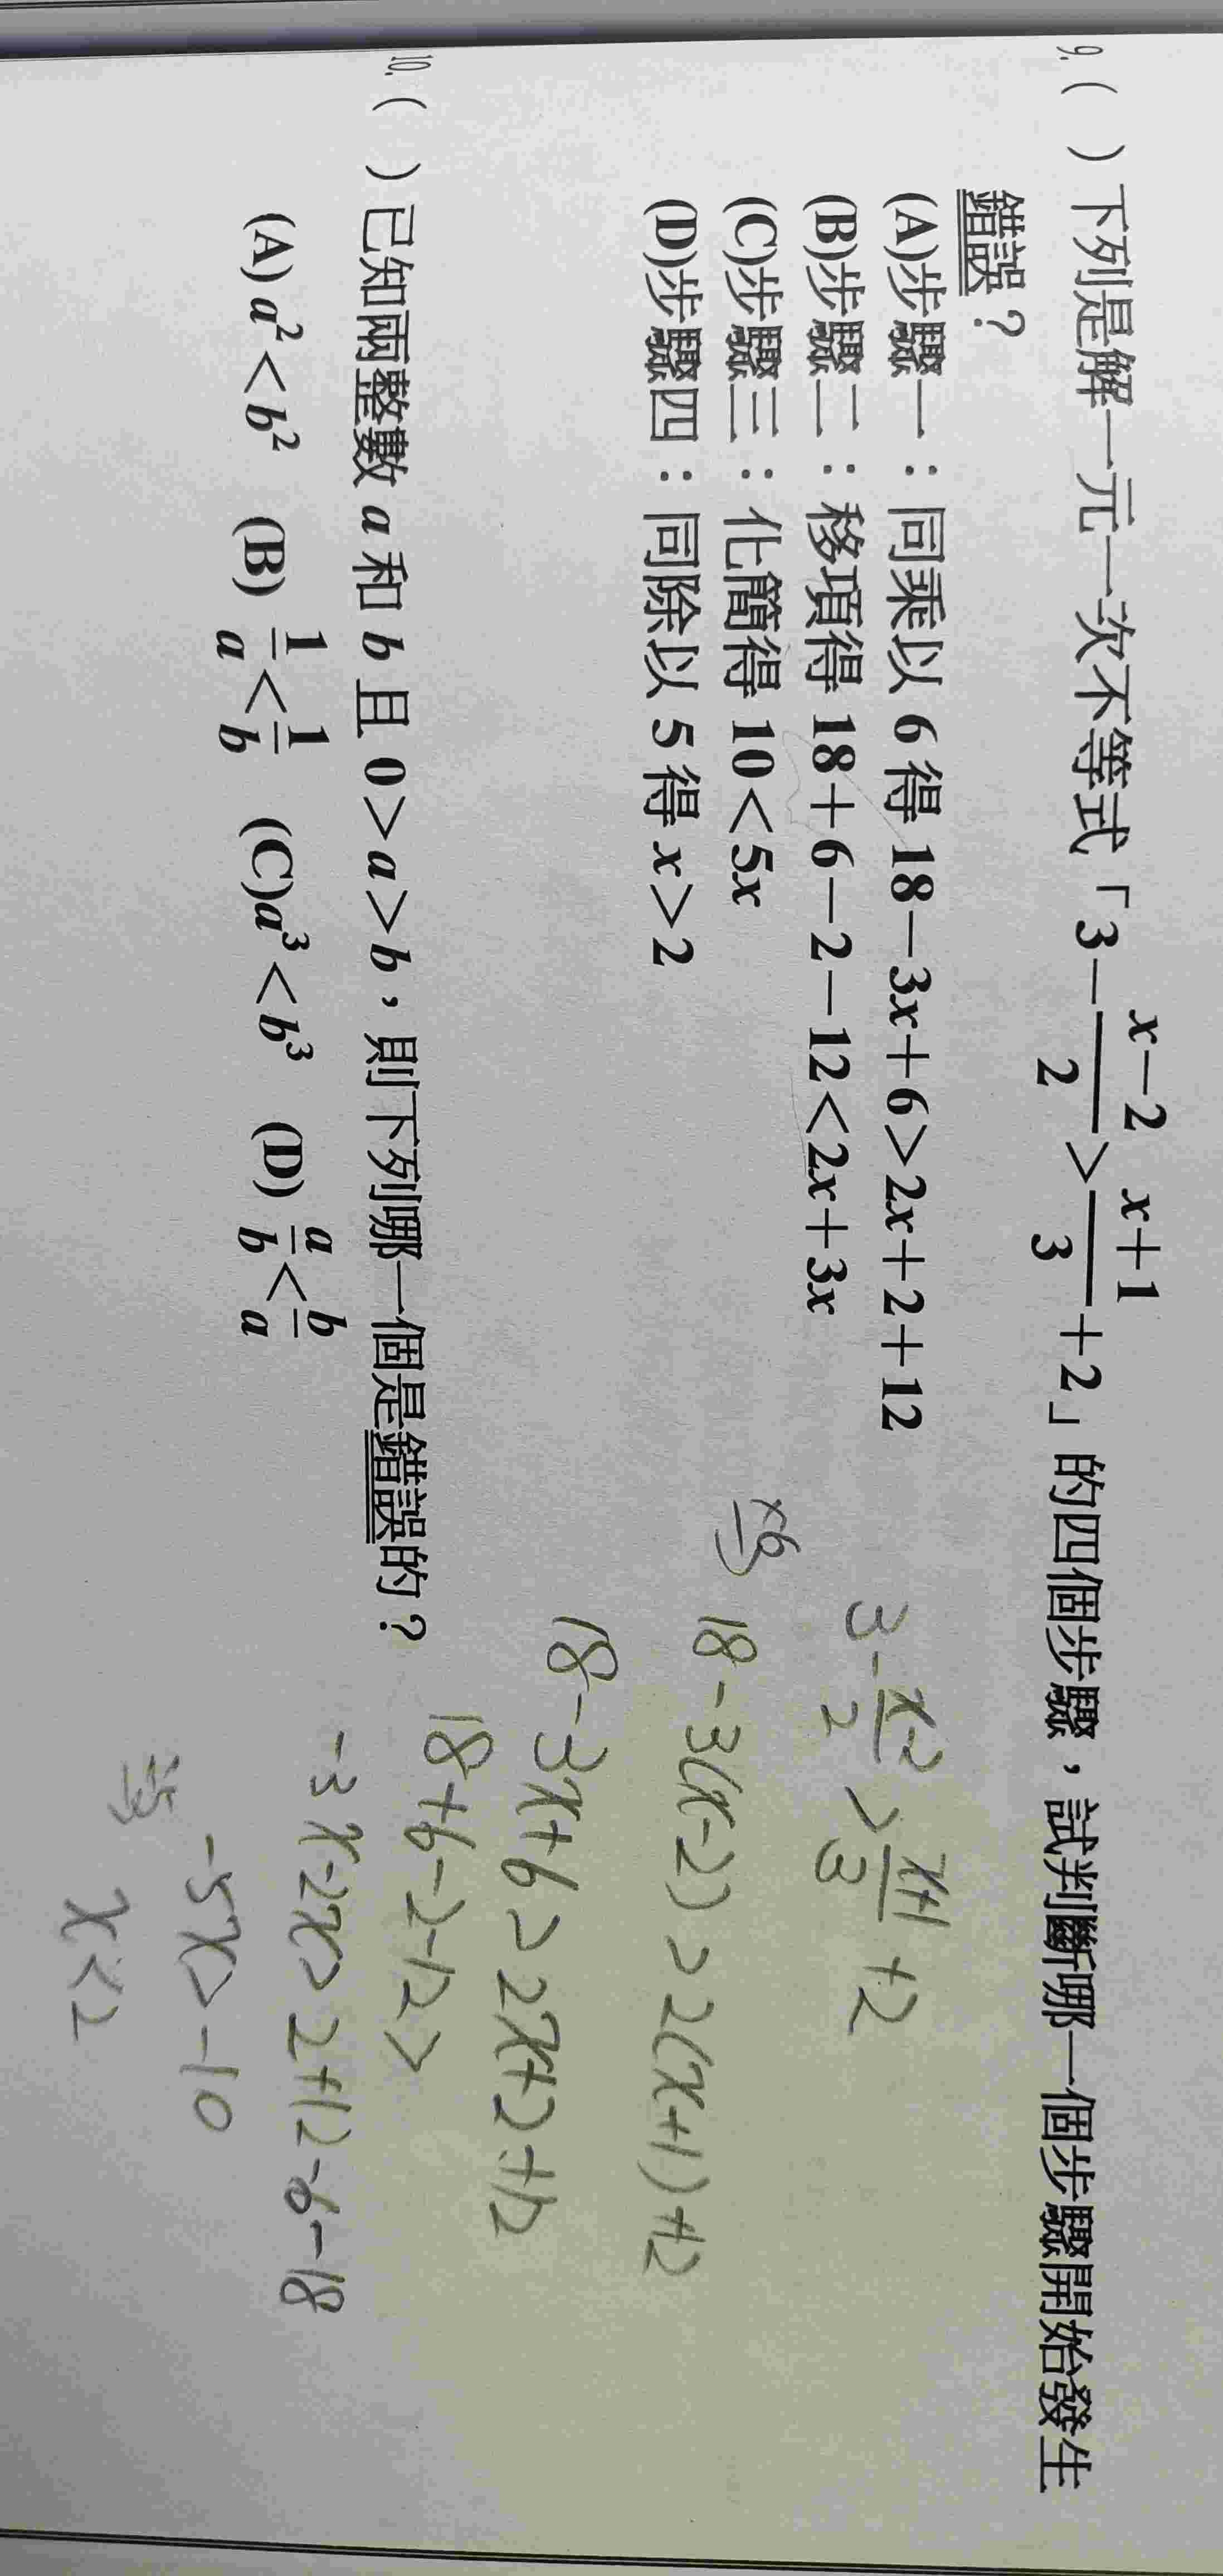 9.（　）下列是解一元一次不等式「3－\frac{x－2}{2}＞\frac{x＋1}{3}＋2」的四個步驟，試判斷哪一個步驟開始發生
錯誤？
(A)步驟一：同乘以 6 得 18－3x＋6＞2x＋2＋12
(B)步驟二：移項得 18＋6－2－12＜2x＋3x
(C)步驟三：化簡得 10＜5x
(D)步驟四：同除以 5 得 x＞2
3-\frac{x-2}{2}>\frac{x+1}{3}+2
×6 18-3(x-2)>2(x+1)+12
18-3x+6>2x+2+12
18+6-2-12>
-3x-2x>2+12-6-18
-5x>-10
x<2
10.（　）已知兩整數 a 和 b 且 0＞a＞b，則下列哪一個是錯誤的？
(A) a²＜b² (B) \frac{1}{a}＜\frac{1}{b} (C)a³＜b³ (D) \frac{a}{b}＜\frac{b}{a}